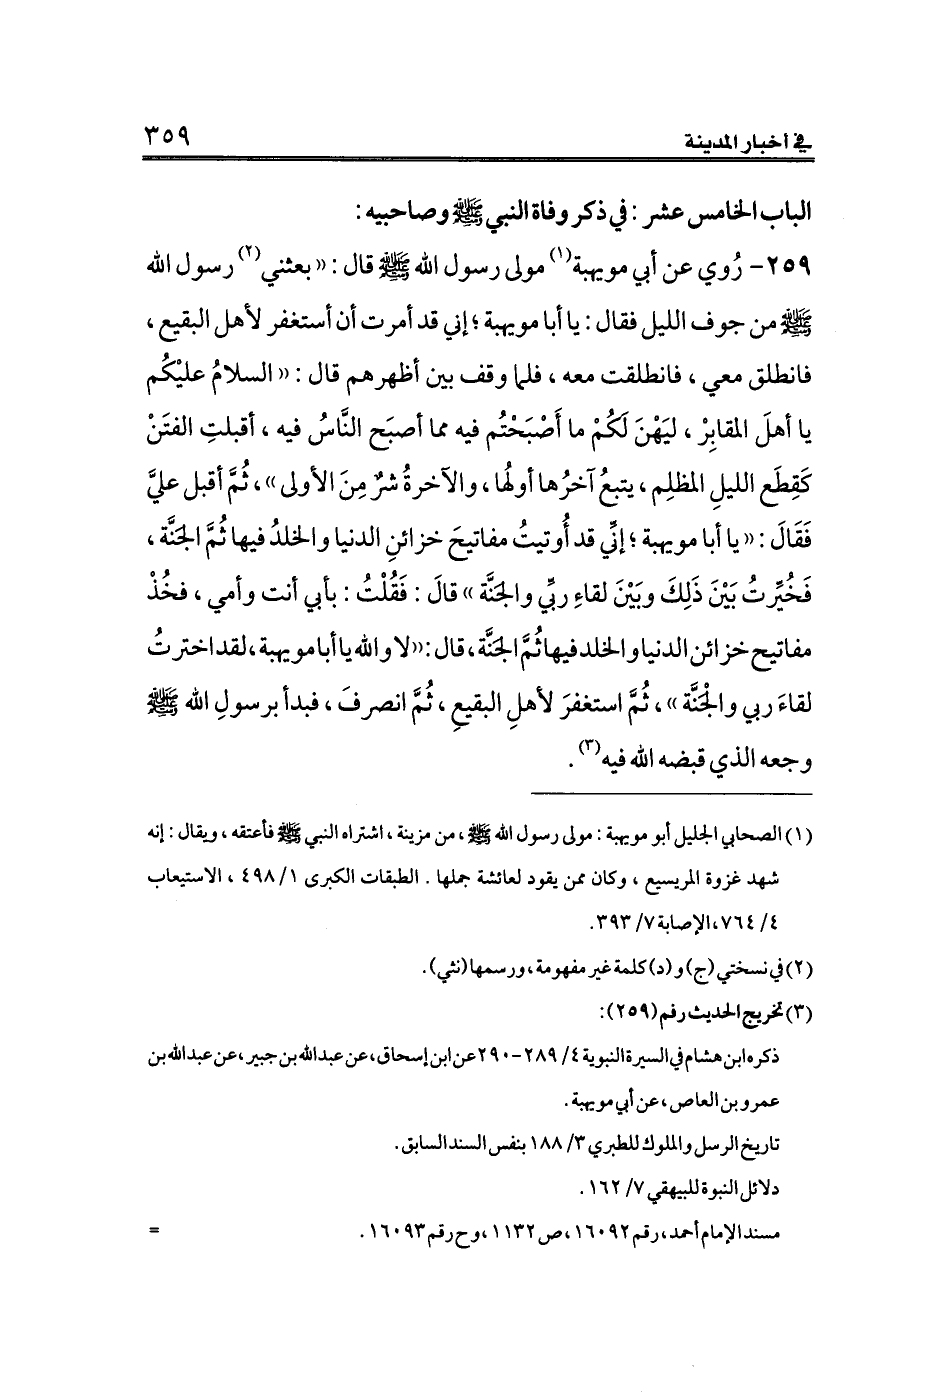 في أخبار المدينة ٣٥٩
الباب الخامس عشر : في ذكر وفاة النبي ﷺ وصاحبيه :
٢٥٩ – رُوي عن أبي مويهبة(١) مولى رسول الله ﷺ قال : « بعثني(٢) رسول الله
ﷺ من جوف الليل فقال : يا أبا مويهبة ؛ إني قد أمرت أن أستغفر لأهل البقيع ،
فانطلق معي ، فانطلقت معه ، فلما وقف بين أظهرهم قال : « السلامُ عليْكُم
يا أهلَ المقابِرْ ، ليَهْنَ لَكُمْ ما أَصْبَحْتُم فيه مما أصبَح النَّاسُ فيه ، أقبلتِ الفتَنْ
كَقِطَع الليلِ المظلِم ، يتبعُ آخرُها أولُها ، والآخرةُ شرٌ مِنَ الأولى » ، ثُمَّ أقبل عليَّ
فَقَالَ : « يا أبا مويهبة ؛ إنِّي قد أُوتيتُ مفاتيحَ خزائنِ الدنيا والخلدُ فيها ثُمَّ الجَنَّة ،
فَخُيِّرتُ بَيْنَ ذَلِكَ وبَيْنَ لقاءِ ربِّي والجَنَّة » قالَ : فَقُلْتُ : بأبي أنت وأمي ، فخُذْ
مفاتيح خزائن الدنيا والخلد فيها ثُمَّ الجَنَّة ، قال : « لا والله يا أبا مويهبة ، لقد اخترتُ
لقاءَ ربي والجْنَّة » ، ثُمَّ استغفرَ لأهلِ البقيعِ ، ثُمَّ انصرفَ ، فبدأ برسولِ الله ﷺ
وجعه الذي قبضه الله فيه(٣) .
(١) الصحابي الجليل أبو مويهبة : مولى رسول الله ﷺ ، من مزينة ، اشتراه النبي ﷺ فأعتقه ، ويقال : إنه
شهد غزوة المريسيع ، وكان ممن يقود لعائشة جملها . الطبقات الكبرى ١/ ٤٩٨ ، الاستيعاب
٤/ ٧٦٤ ، الإصابة ٧/ ٣٩٣.
(٢) في نسختي (ج) و (د) كلمة غير مفهومة ، ورسمها (نثي).
(٣) تخريج الحديث رقم (٢٥٩):
ذكره ابن هشام في السيرة النبوية ٤/ ٢٨٩ – ٢٩٠ عن ابن إسحاق ، عن عبدالله بن جبير ، عن عبدالله بن
عمرو بن العاص ، عن أبي مويهبة .
تاريخ الرسل والملوك للطبري ٣/ ١٨٨ بنفس السند السابق .
دلائل النبوة للبيهقي ٧/ ١٦٢ .
مسند الإمام أحمد ، رقم ١٦٠٩٢ ، ص ١١٣٢ ، وح رقم ١٦٠٩٣ . =